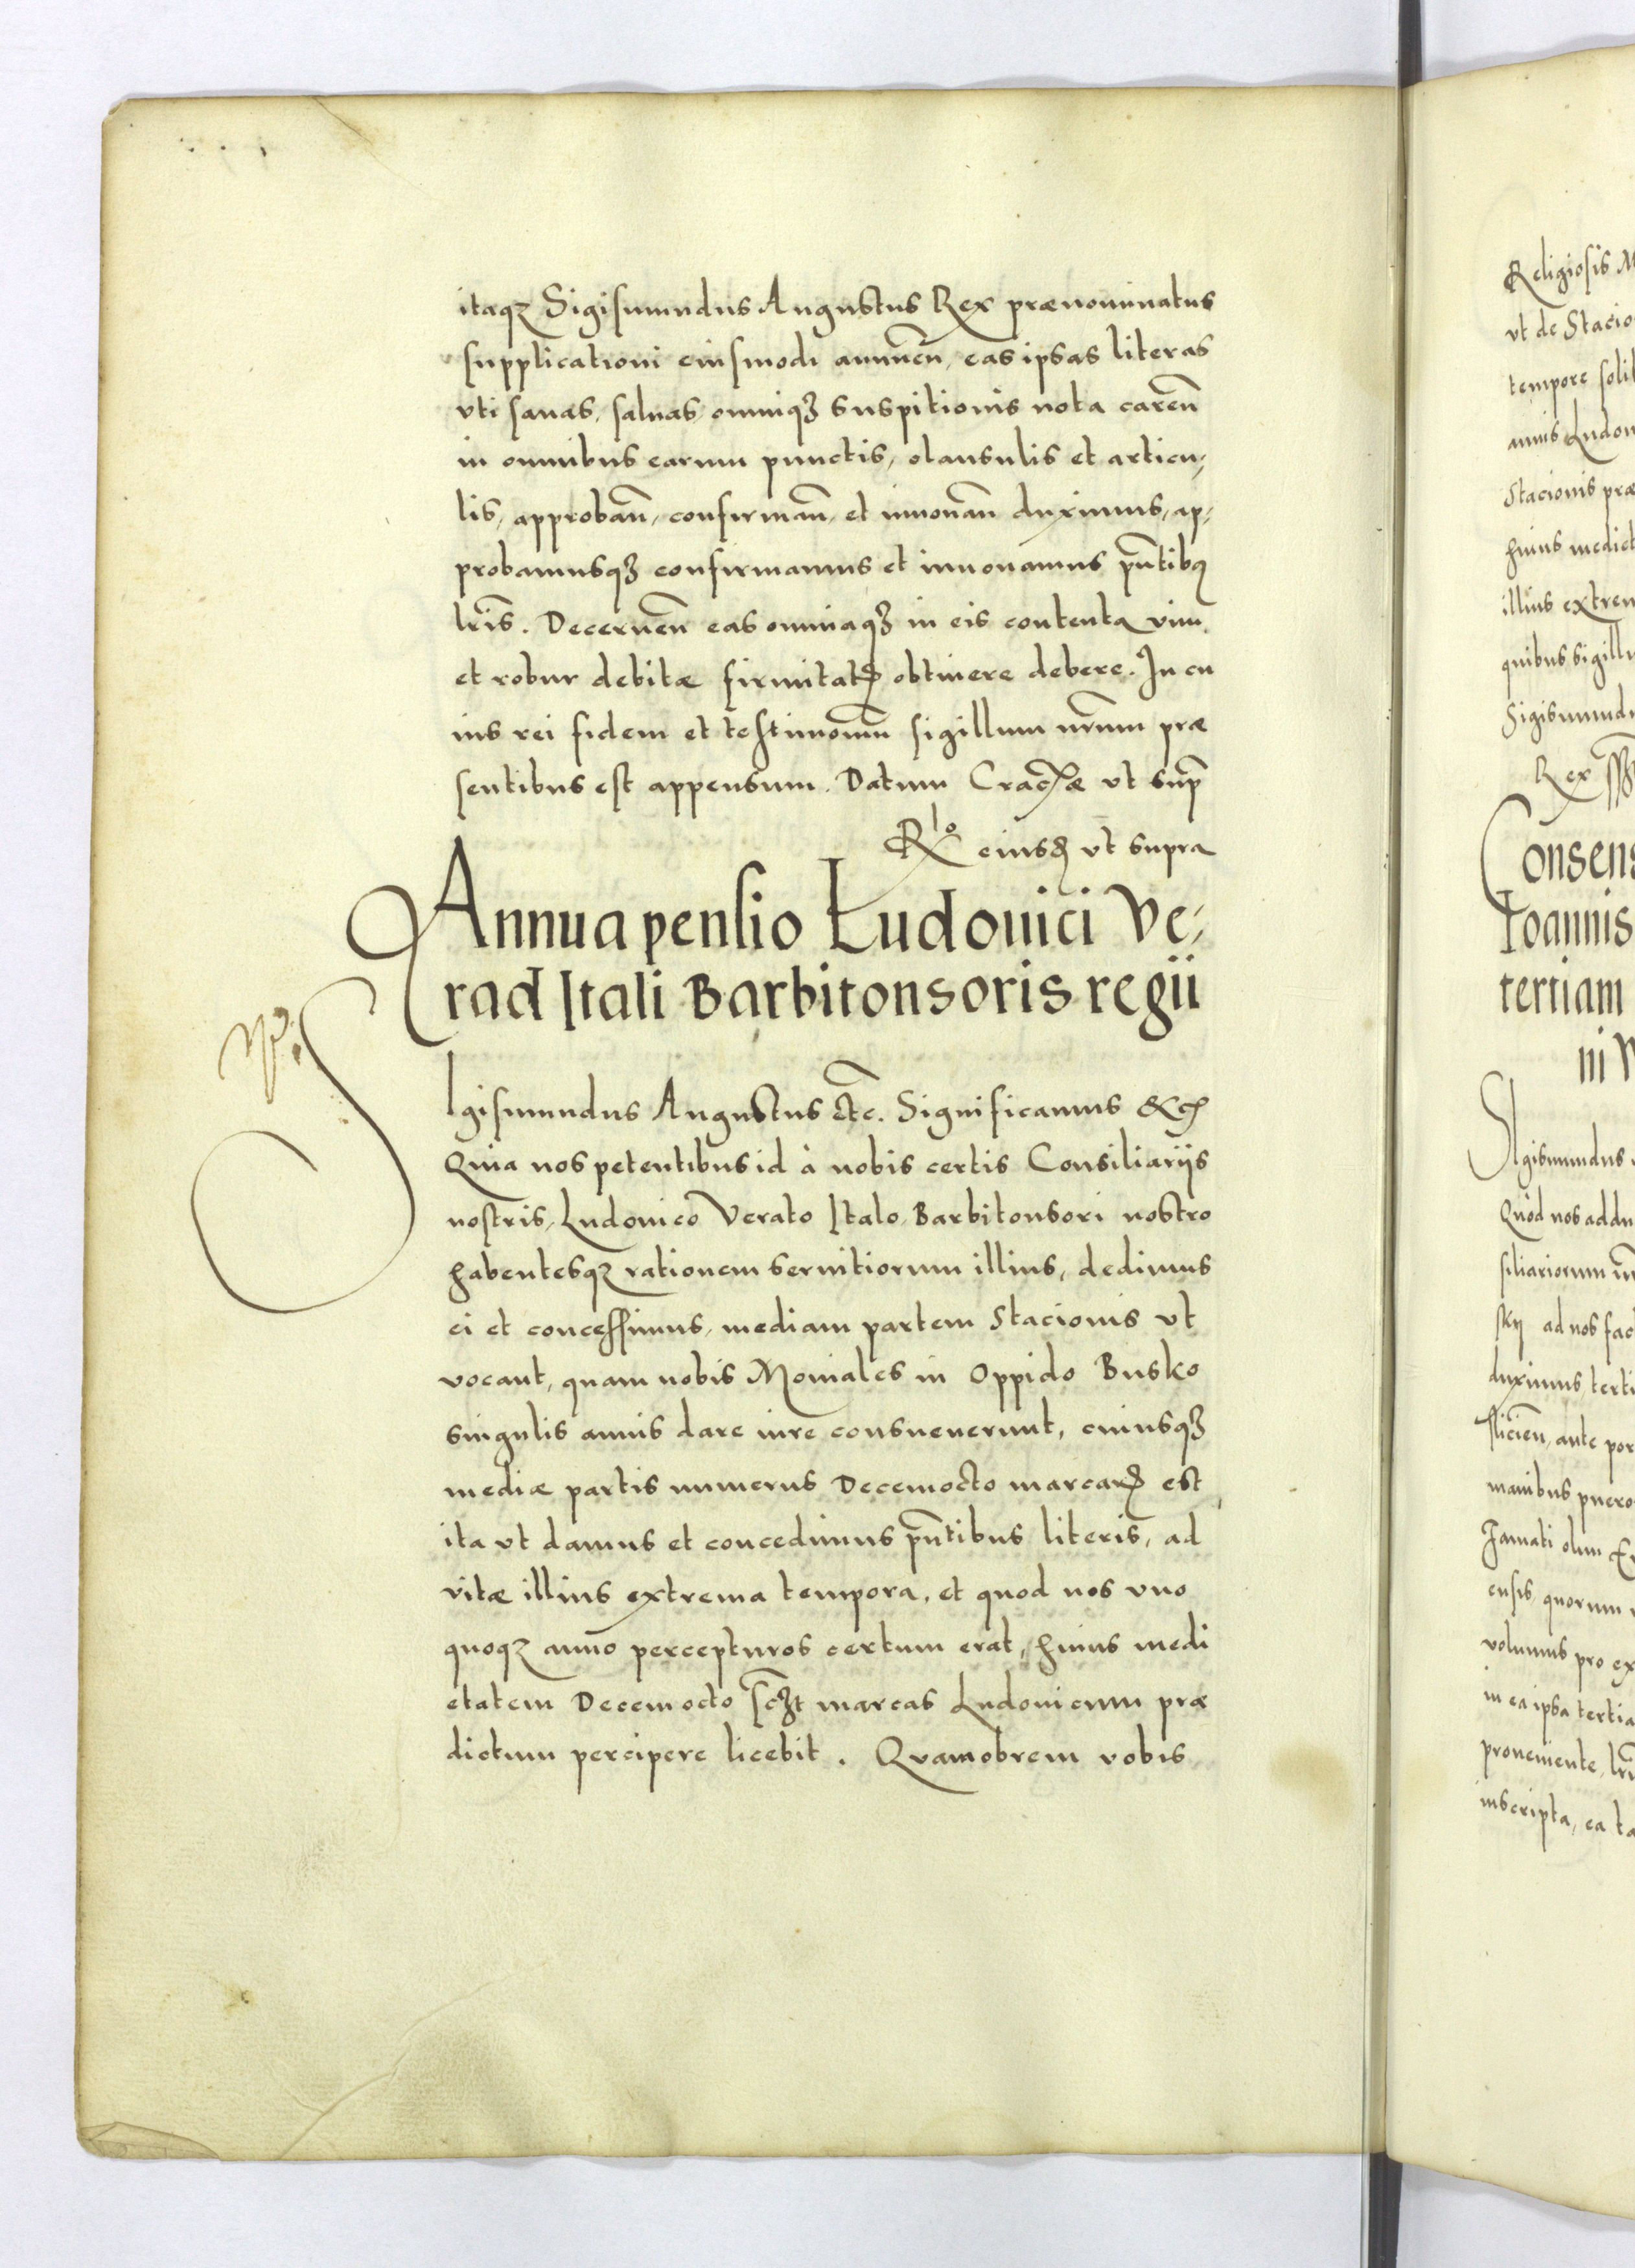 itaqꝫ Sigismundus Augustus Rex prænominatus
supplicationi eiusmodi annuen̄, eas ipsas literas
vti sanas, saluas, omniqꝫ suspitionis nota caren̄
in omnibus earum punctis, clausulis et articu⸗
lis, approban̄, confirman̄, et innouan̄ duximus, ap⸗
probamusqꝫ confirmamus et innouamus pn̄tibꝯ
lr̄is. Decernen̄ eas omniaqꝫ in eis contenta vim
et robur debitæ firmitatꝭ obtinere debere. In cu
ius rei fidem et testimoniū sigillum nr̄um præ
sentibus est appensum. Datum Cracꝭæ vt sup̄
Rlo eiusd vt supra
Annua pensio Ludouici Ve⸗
rad Itali Barbitonsoris regii
SIgismundus Augustus etc̄. Significamus &cꝭ
Quia nos petentibus id à nobis certis Consiliarijs
nostris, Ludouico Verato Italo, Barbitonsori nostro
habentesqꝫ rationem seruitiorum illius, dedimus
ei et concessimus, mediam partem Stacionis vt
vocant, quam nobis Moniales in Oppido Busko
singulis annis dare iure consueuerunt, cuiusqꝫ
mediæ partis numerus Decemocto marcarꝭ est
ita vt damus et concedimus pn̄tibus literis, ad
vitæ illius extrema tempora, et quod nos vno
quoqꝫ anno percepturos certum erat, huius medi
etatem Decemocto scꝫt marcas Ludouicum præ
dictum percipere licebit. Quamobrem vobis
Religiosis M
vt de Stacio
tempore soli
annis Ludou
Stacionis præ
huius mediet
illius extrem
quibus sigillu
Sigismundu
Rex
Consens
Ioannis
tertiam
in
SIgismundus
Quòd nos addu
siliariorum nr̄
skij ad nos fac
duximus, terti
ante por
manibus puero
Famati olim
ensis, quorum
volumus pro ex
in ea ipsa tertia
proueniente, lr̄i
inscripta, ea ta